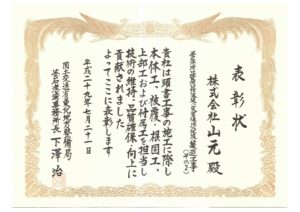 表彰状
株式会社山元殿
貴社は頭書工事の施工に際し
本体工、被覆・根固工、
上部工および付属工を担当し
技術の維持、品質確保、向上に
貢献されました
よってここに表彰します
平成二十九年七月二十一日
国土交通省東北地方整備局
釜石港湾事務所長 下澤 治